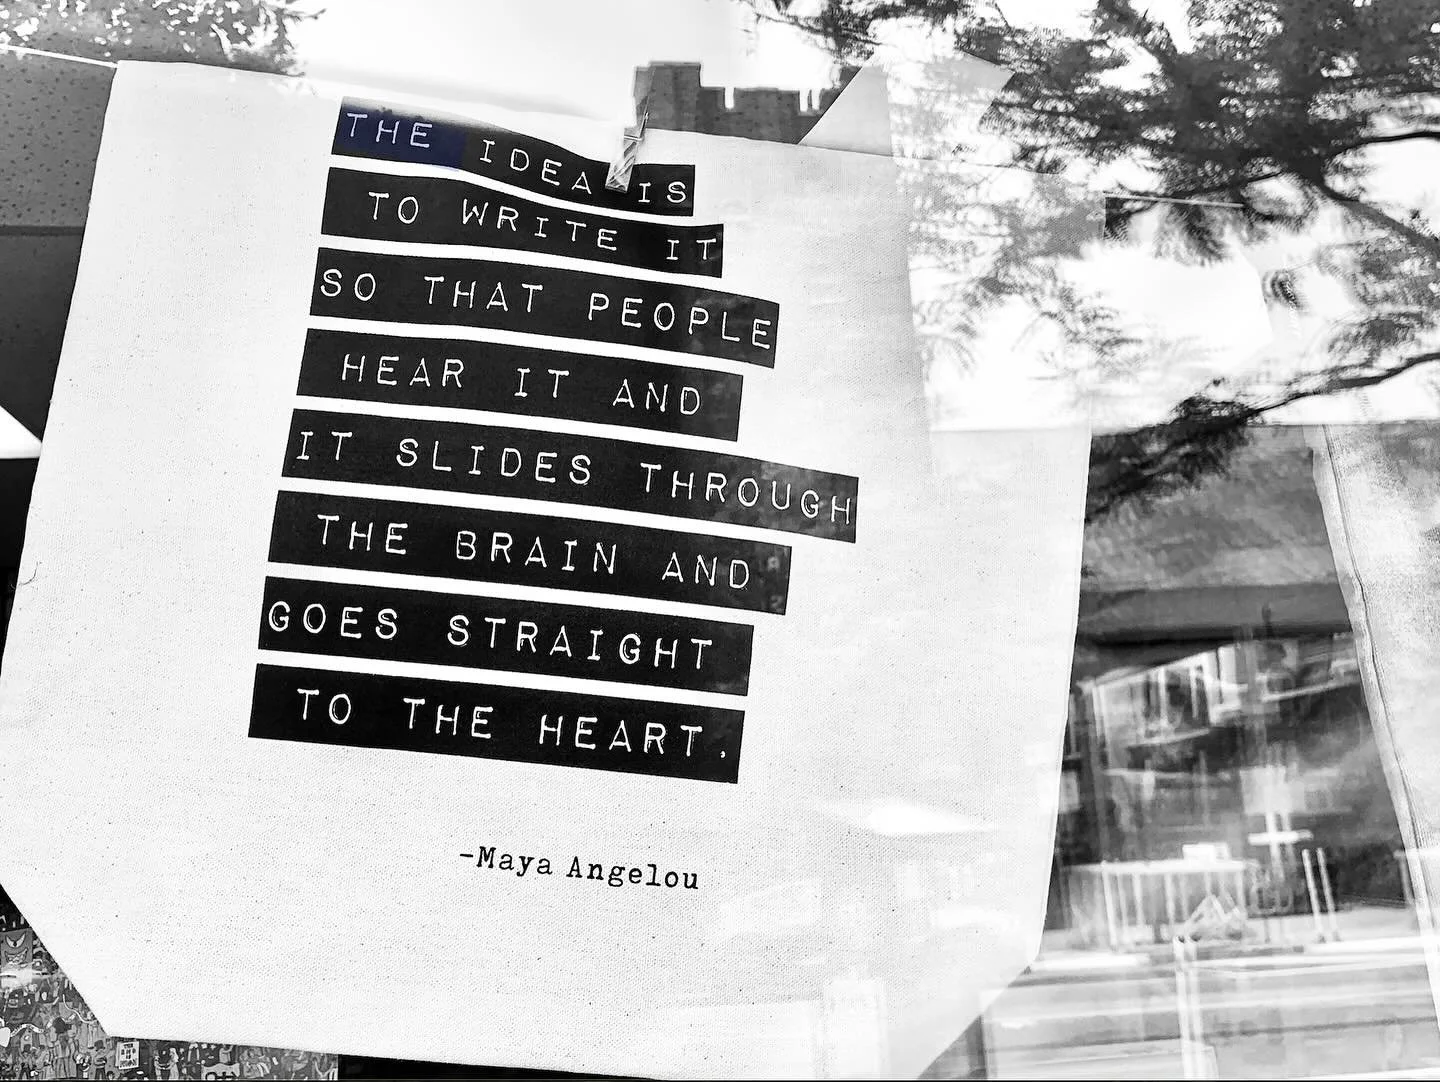 THE IDEA IS
TO WRITE IT
SO THAT PEOPLE
HEAR IT AND
IT SLIDES THROUGH
THE BRAIN AND
GOES STRAIGHT
TO THE HEART.
-Maya Angelou